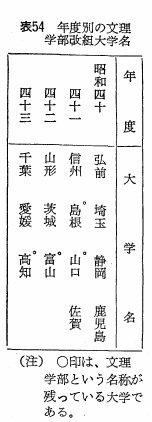 表54 年度別の文理
学部改組大学名
年度 大学名
昭和四十 弘前 埼玉 静岡 鹿児島
四十一 信州 °島根 山口 佐賀
四十二 山形 茨城 °富山
四十三 千葉 愛媛 °高知
(注) ○印は、文理
学部という名称が
残っている大学で
ある。